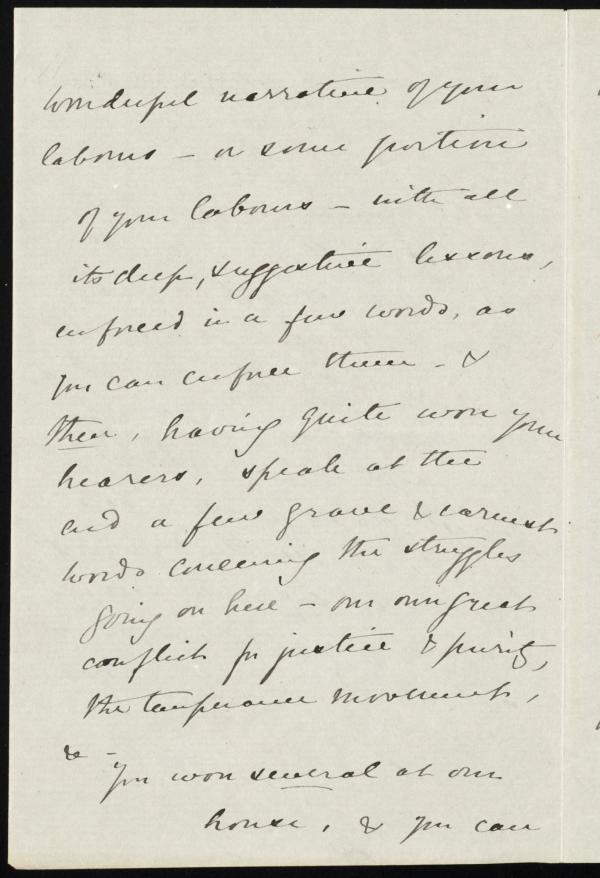 wonderful narrative of your
labours – or some portion
of your labours – with all
its deep, suggestive lessons,
enforced in a few words, as
you can enforce them – &
then, having quite won your
hearers, speak at the
end a few grave & earnest
words concerning the struggles
going on here – our own great
conflict for justice & purity,
the temperance movement,
& –
You won several at our
house, & you can